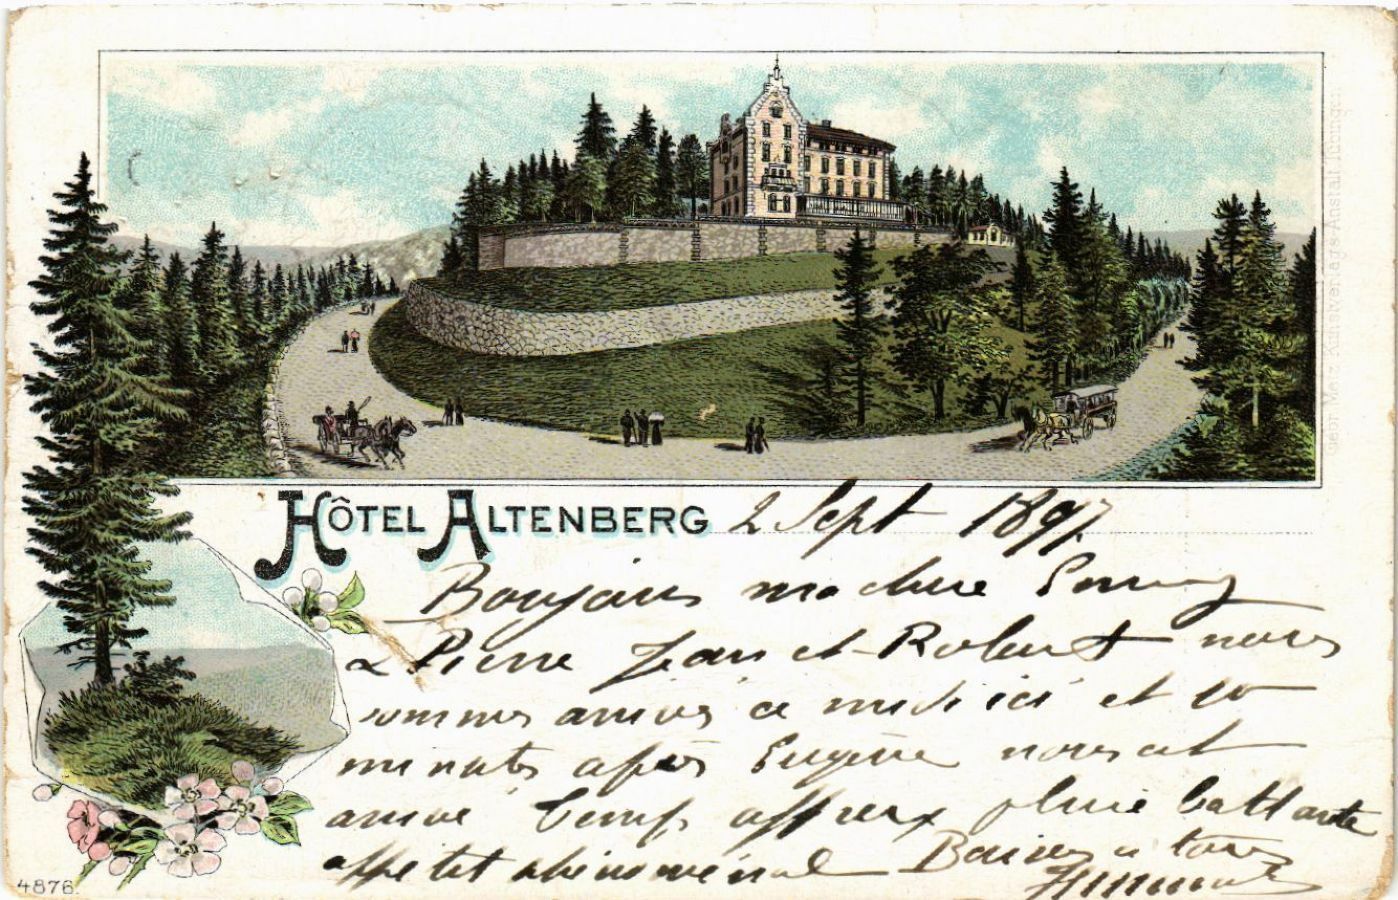 Geor Metz Kunstverlags-Anstalt Tübingen
HÔTEL ALTENBERG 2 Sept 1897
Bonjour ma chère
& Pierre Jean et Robert nous
sommes arrivés à midi ici et 10
minutes après Eugène nous est
arrivé temps affreux pluie battante
appétit phénoménal Baisers à tous
4876.